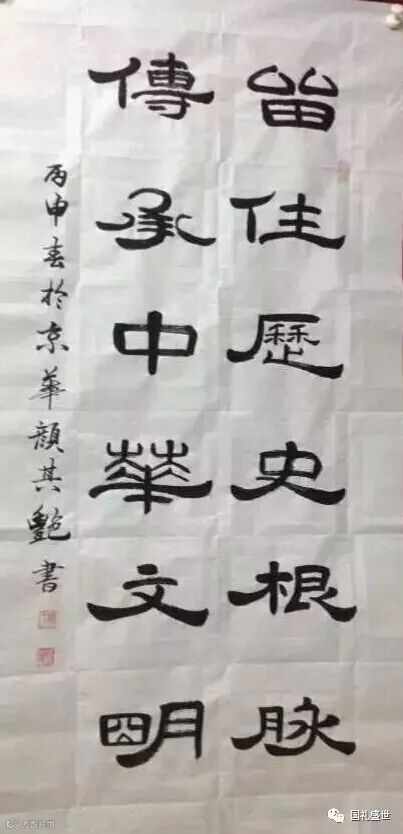 畄住歷史根脉
傳承中華文明
丙申春於京華顏其艷書
国礼盛世